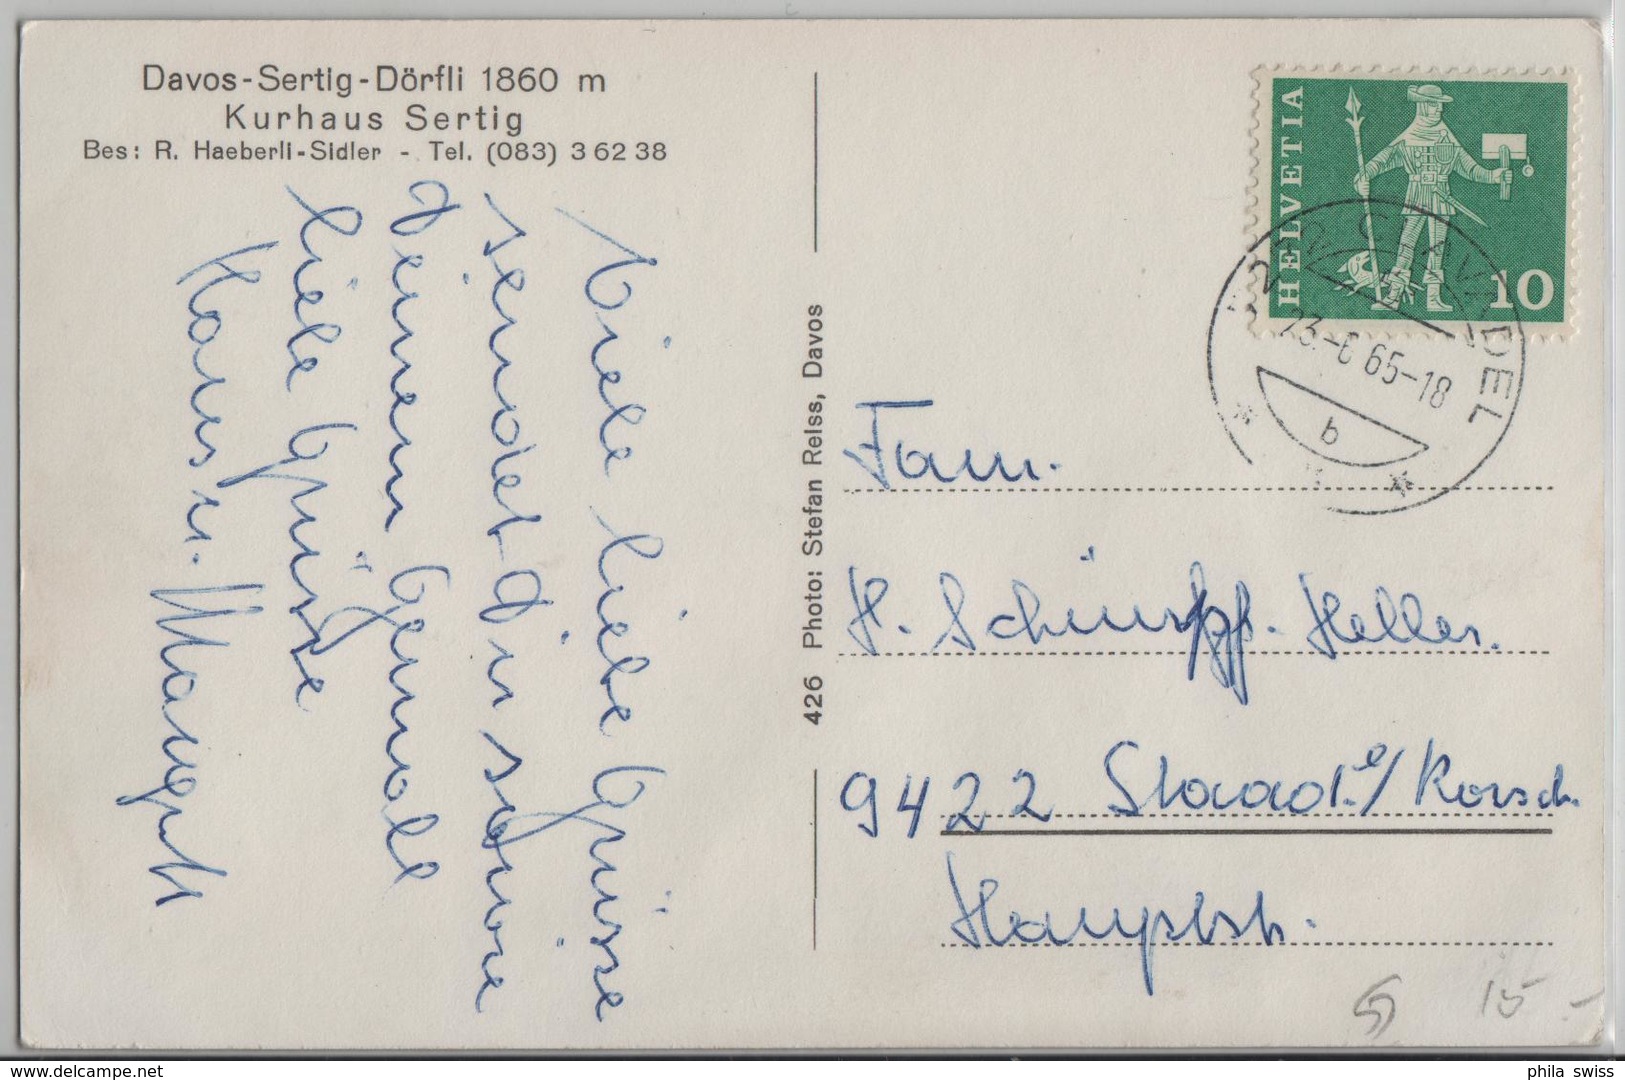 Davos-Sertig-Dörfli 1860 m
Kurhaus Sertig
Bes: R. Haeberli-Sidler - Tel. (083) 3 62 38
Viele liebe Grüsse
sendet Dir sowie
Deinem Gemahl
liebe Grüsse
Hans u. Margrit
426 Photo: Stefan Reiss, Davos
HELVETIA
10
CLAVADEL
23.-6 65-18
b
Fam.
H. Schürpf. Heller.
9422 Staad. b/ Rorsch.
Hauptstr.
15.-
phila swiss